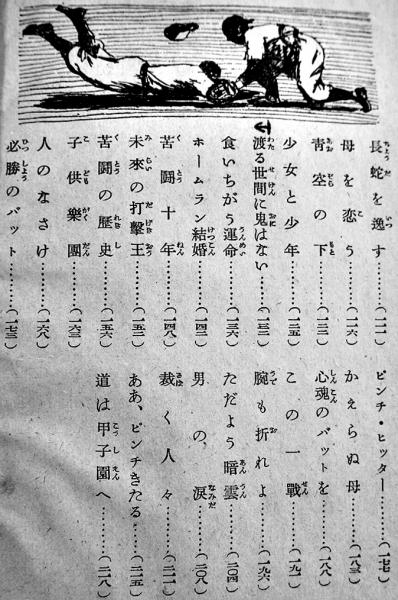 長蛇を逸す………(一一一)
母を恋う………(一一六)
靑空の下………(一二一)
少女と少年………(一二五)
渡る世間に鬼はない………(一三一)
食いちがう運命………(一三六)
ホームラン結婚………(一四二)
苦闘十年………(一四八)
未來の打擊王………(一五二)
苦闘の歴史………(一五六)
子供樂團………(一六三)
人のなさけ………(一六八)
必勝のバット………(一七三)
ピンチ・ヒッター………(一七七)
かえらぬ母………(一八三)
心魂のバットを………(一八八)
この一戰………(一九一)
腕も折れよ………(一九六)
ただよう暗雲………(二〇四)
男の淚………(二〇八)
裁く人々………(二一一)
ああ、ピンチきたる………(二一五)
道は甲子園へ………(二一八)